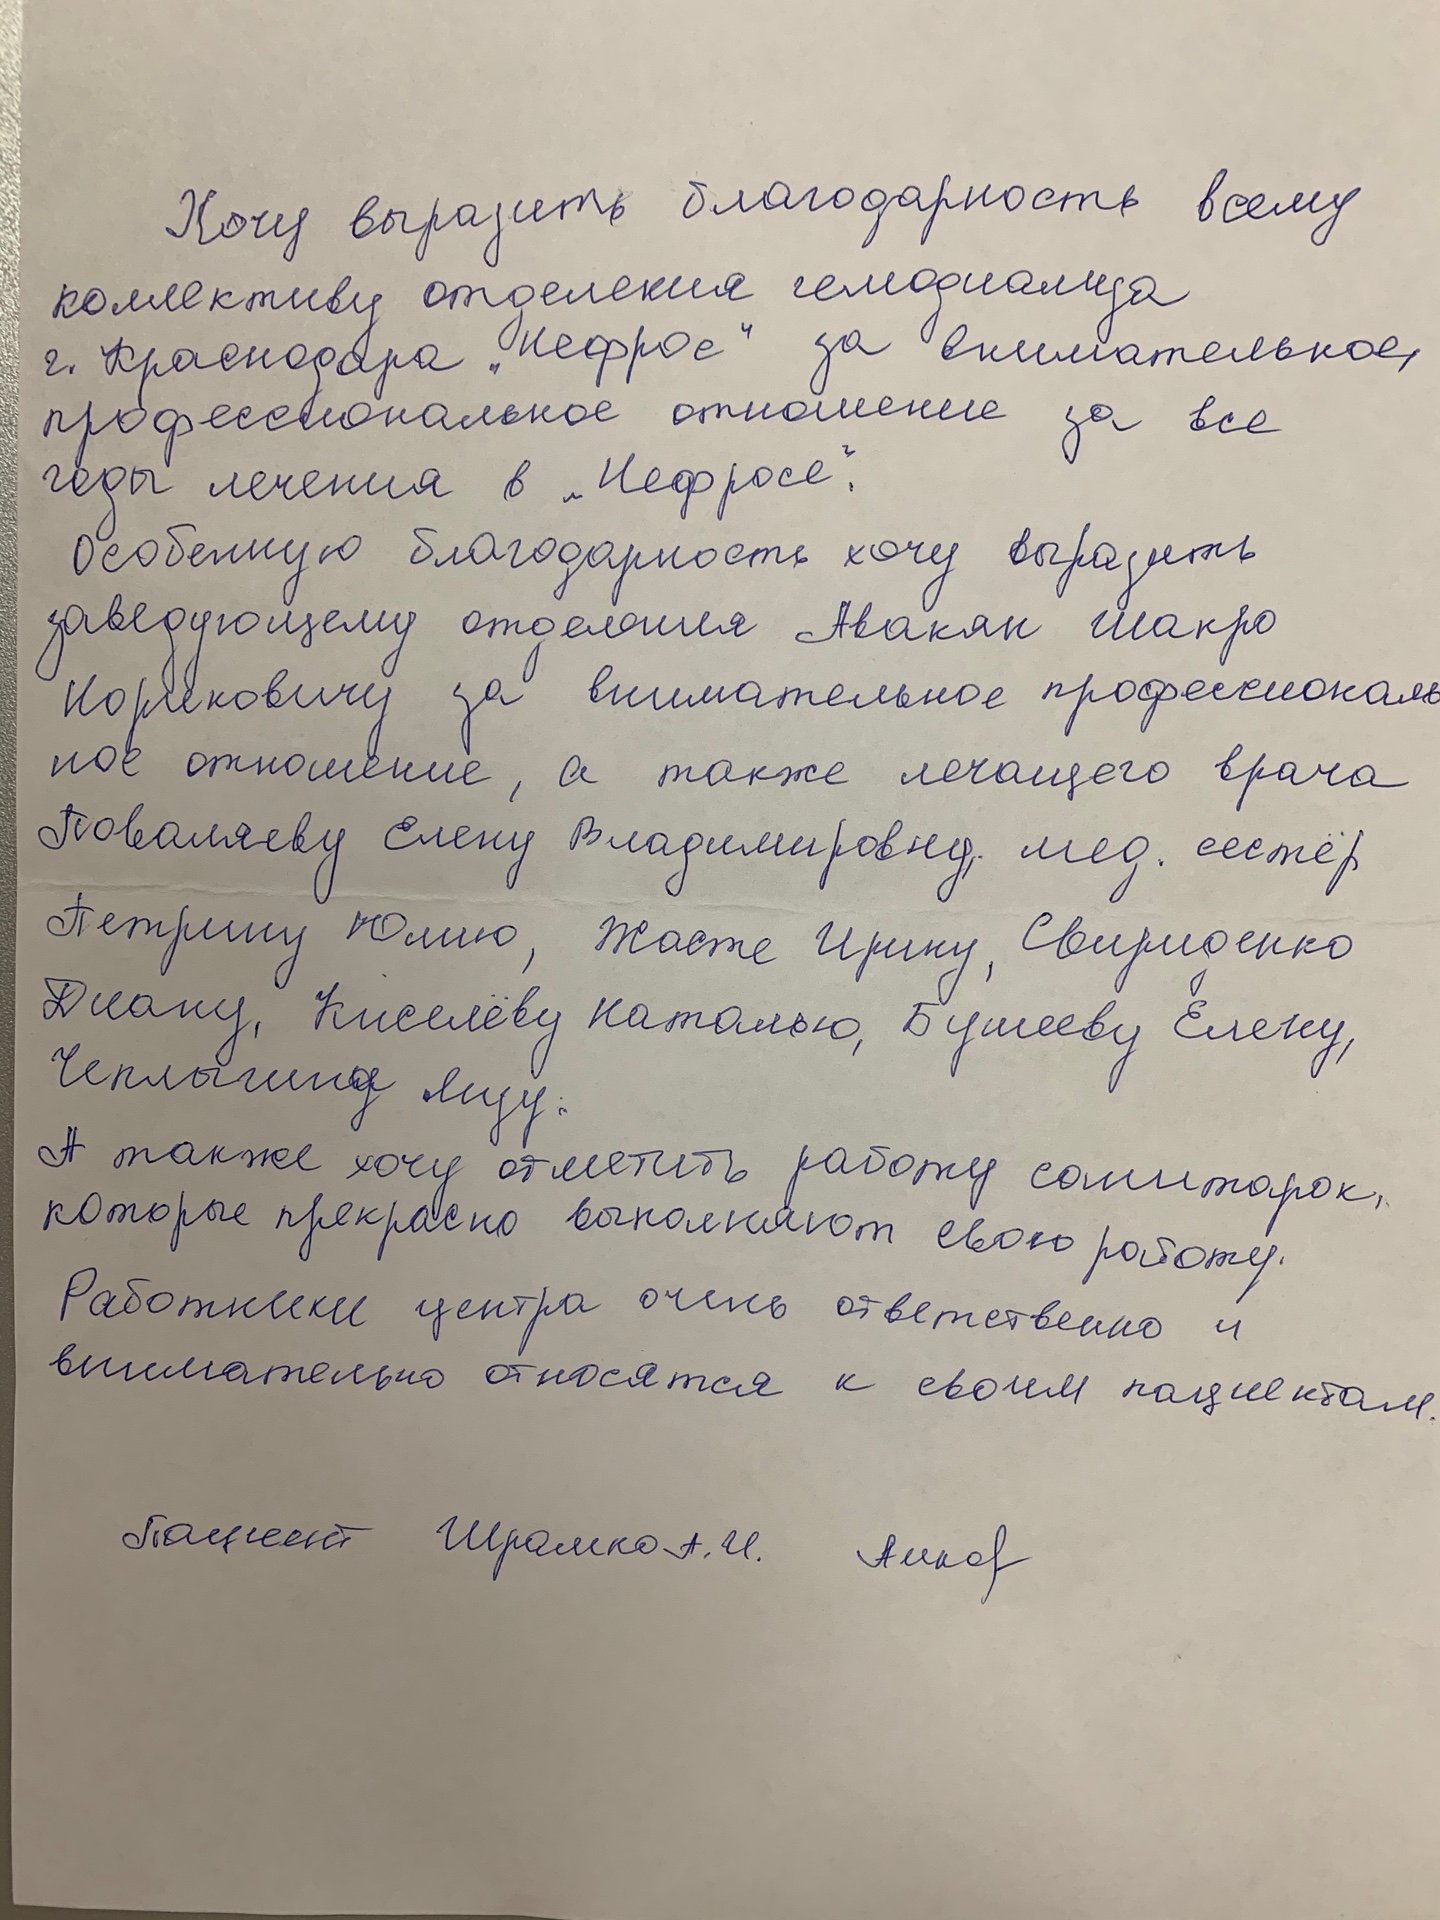 Хочу выразить благодарность всему
коллективу отделения гемодиализа
г. Краснодара „Нефрос“ за внимательное,
профессиональное отношение за все
годы лечения в „Нефросе“.
Особенную благодарность хочу выразить
заведующему отделения Авакян Шакро
Норлековичу за внимательное профессиональ
ное отношение, а также лечащего врача
Поваляеву Елену Владимировну, мед. сестёр
Петрину Юлию, Жасте Ирину, Свириденко
Диану, Киселёву Наталью, Бушееву Елену,
Чеплыгину Лизу.
А также хочу отметить работу санитарок,
которые прекрасно выполняют свою работу.
Работники центра очень ответственно и
внимательно относятся к своим пациентам.
Пациент Шрамко А.И.